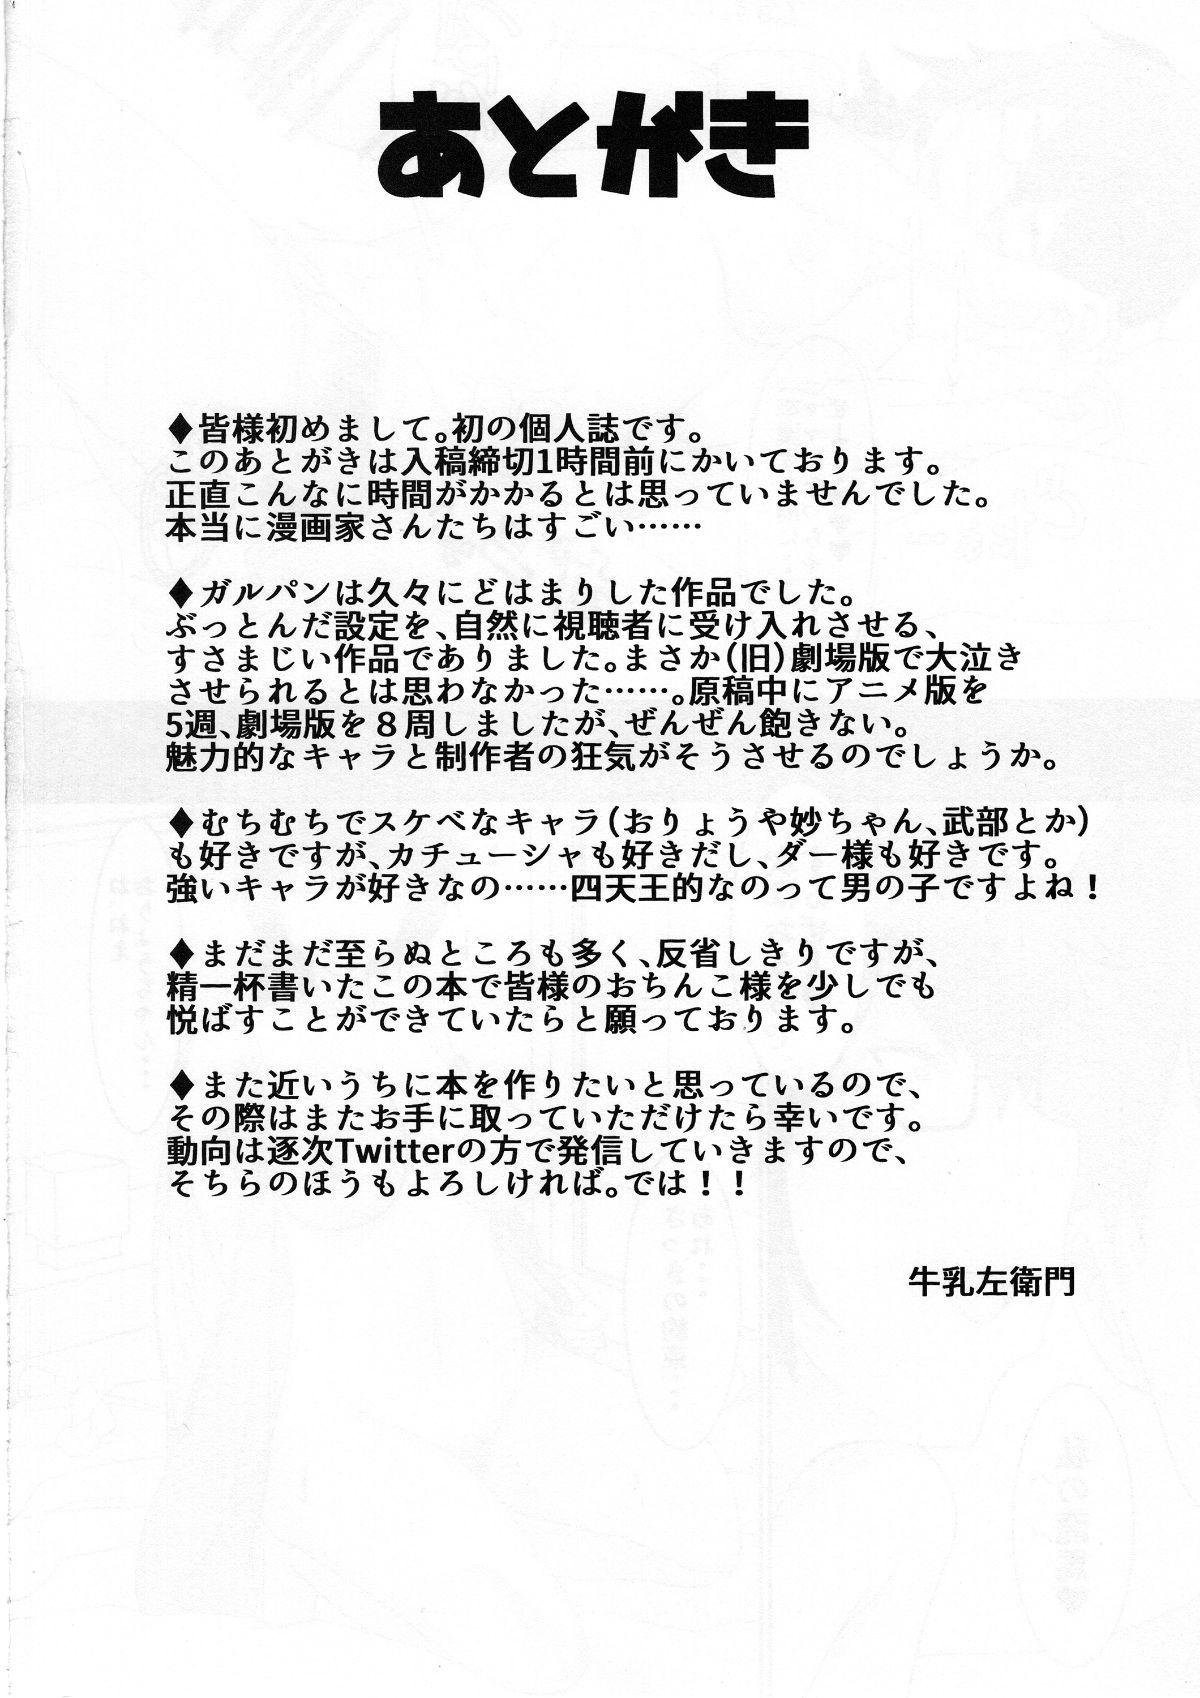 あとがき
♦皆様初めまして。初の個人誌です。
このあとがきは入稿締切1時間前にかいております。
正直こんなに時間がかかるとは思っていませんでした。
本当に漫画家さんたちはすごい……
♦ガルパンは久々にどはまりした作品でした。
ぶっとんだ設定を、自然に視聴者に受け入れさせる、
すさまじい作品でありました。まさか（旧）劇場版で大泣き
させられるとは思わなかった……。原稿中にアニメ版を
5週、劇場版を８周しましたが、ぜんぜん飽きない。
魅力的なキャラと制作者の狂気がそうさせるのでしょうか。
♦むちむちでスケベなキャラ（おりょうや妙ちゃん、武部とか）
も好きですが、カチューシャも好きだし、ダー様も好きです。
強いキャラが好きなの……四天王的なのって男の子ですよね！
♦まだまだ至らぬところも多く、反省しきりですが、
精一杯書いたこの本で皆様のおちんこ様を少しでも
悦ばすことができていたらと願っております。
♦また近いうちに本を作りたいと思っているので、
その際はまたお手に取っていただけたら幸いです。
動向は逐次Twitterの方で発信していきますので、
そちらのほうもよろしければ。では！！
牛乳左衛門